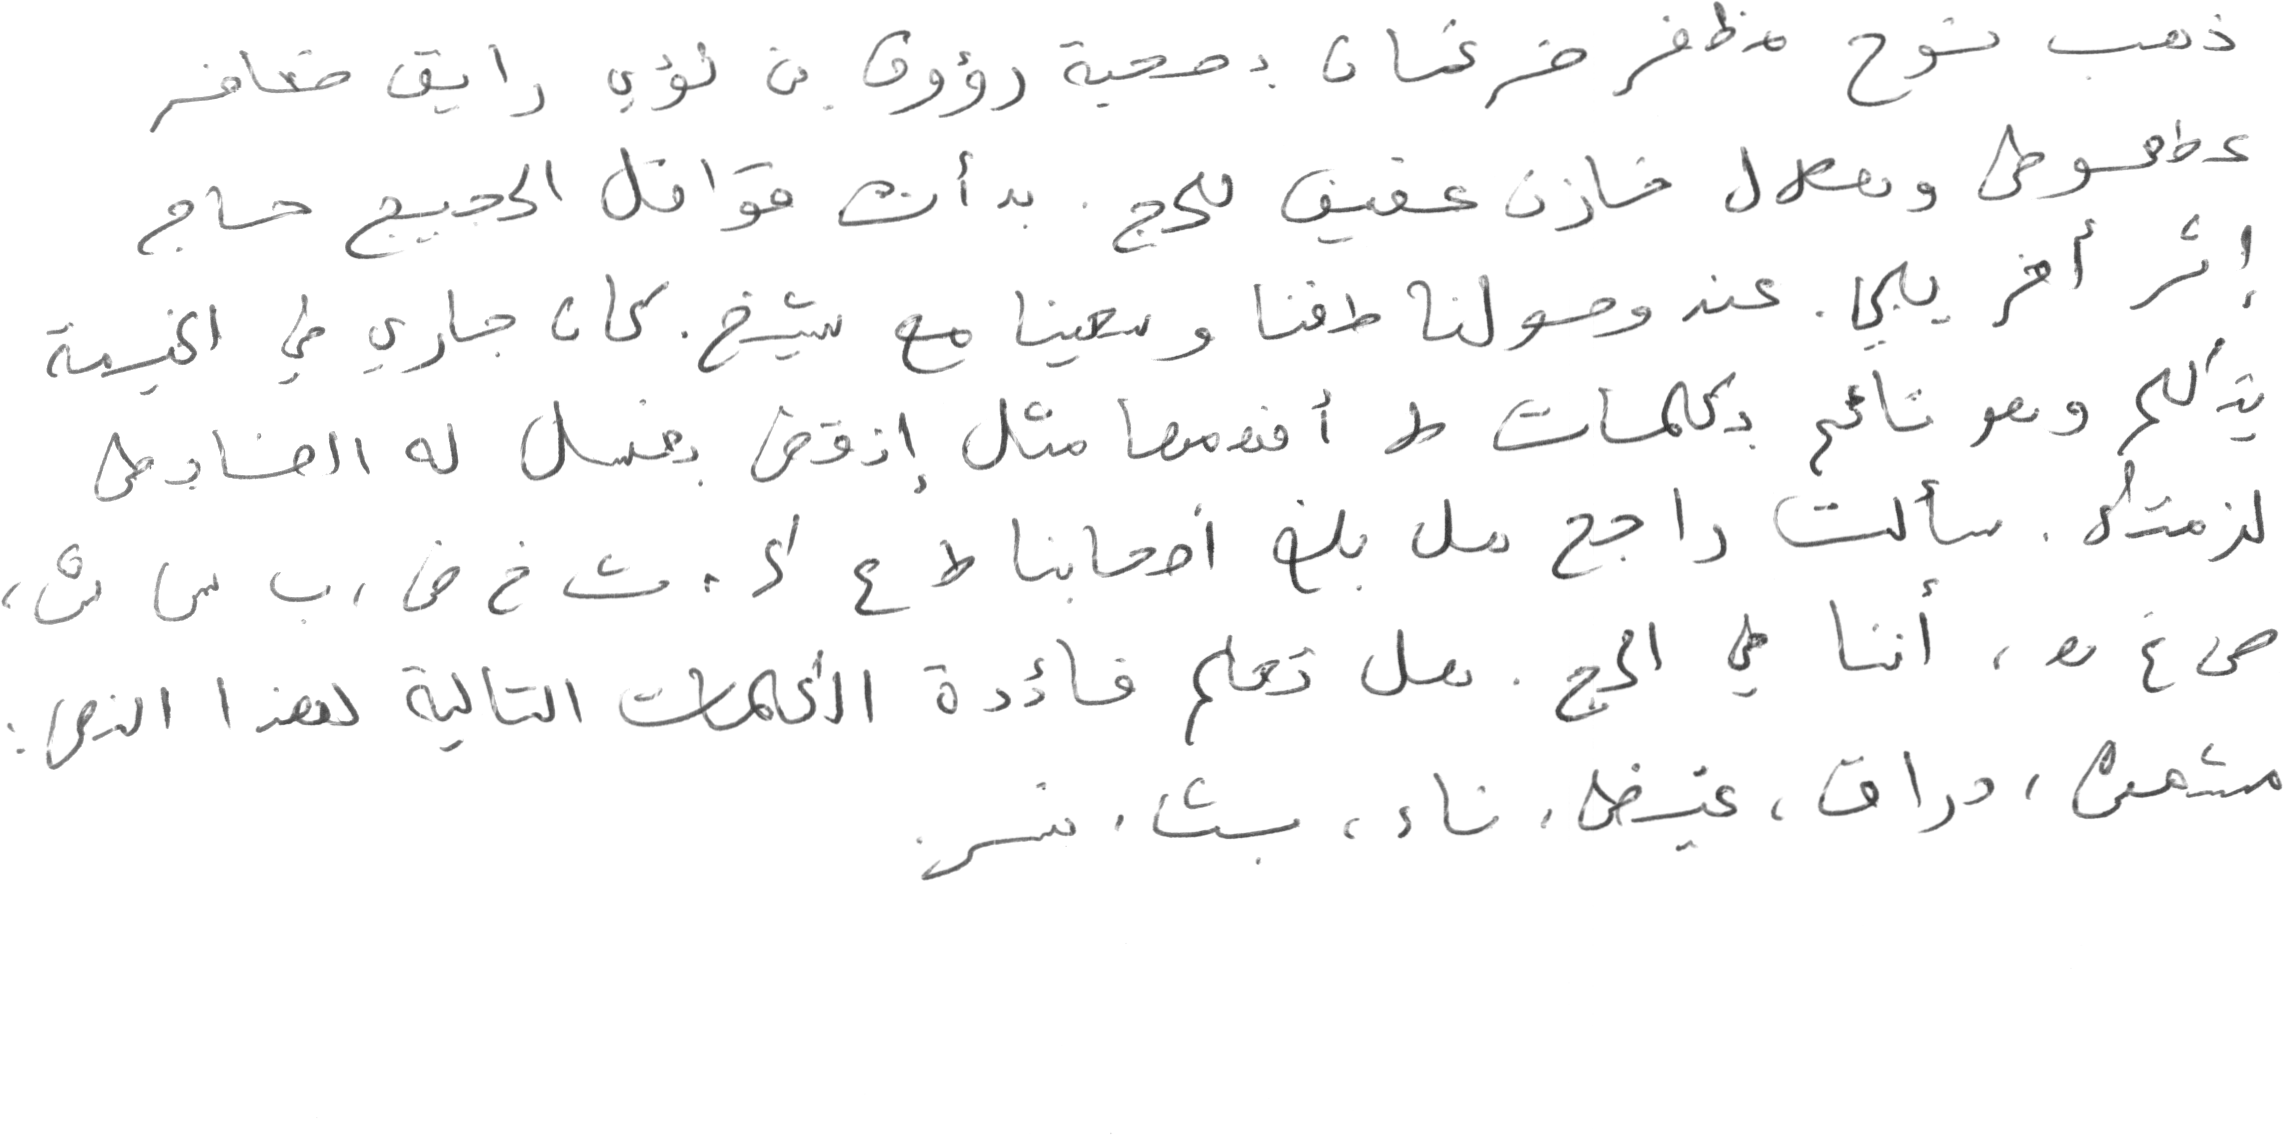 ذهب نوح مظفر ضرغمان بصحبة رؤوف بن لؤي رايق ظافر
عطعوط وهلال خازن عفيف للحج. بدأت قوافل الحجيج حاج
إثر أخر يلبي. عند وصولنا طفنا وسعينا مع شيخ. كان جاري في الخيمة
يتكلم وهو نائم بكلمات لا أفهمها مثل إنقض بغسل له الضابط
لزمتك. سألت راجح هل بلغ أصحابنا ط ع ك، ث خ ض، ب س ش،
ص غ ه، أننا في الحج. هل تعلم فائدة الكلمات التالية لهذا النص:
مشمش، دراق، غيظ، ناء، بث، نسر.